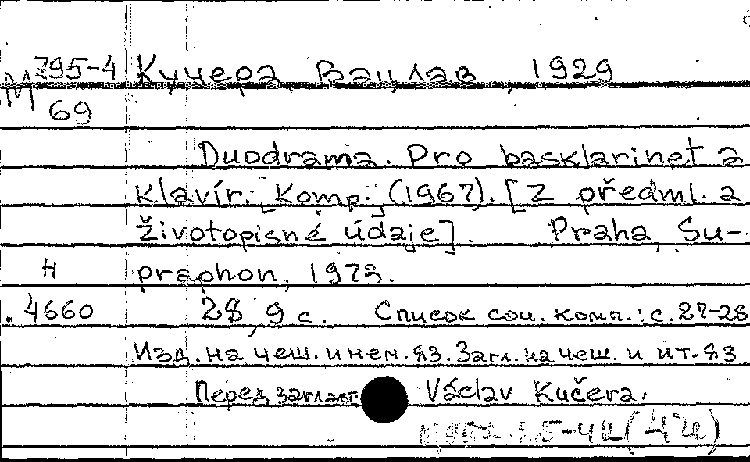 М 795-4 Кучера, Вацлав, 1929
69
Duodrama. Pro basklarinet a
klavír. [Komp.] (1967). [Z předml. a
životopisné údaje]. Praha, Su-
Н praphon, 1973.
4660 28, 9 с. Список соч. комп.: с. 27-28
Изд. на чеш. и нем. яз. Загл. на чеш. и ит. яз
Перед заглав. Václav Kučera.